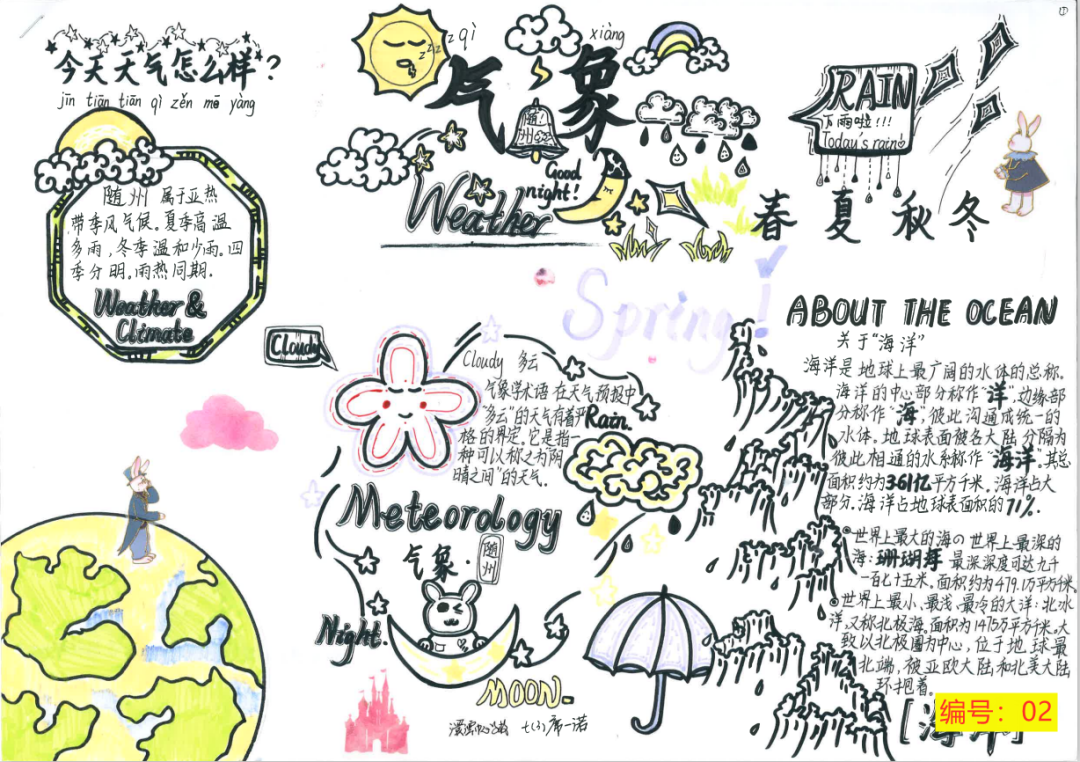 今天天气怎么样？
jīn tiān tiān qì zěn me yàng
随州 属于亚热
带季风气候。夏季高温
多雨，冬季温和少雨。四
季分明。雨热同期.
Weather &
Climate
qì xiàng
z z z
气象
随州
Good
night!
Weather
RAIN
下雨啦!!!
Today's rain
春 夏 秋 冬
Spring!
Cloudy
Cloudy 多云
气象学术语 在天气预报中
"多云"的天气有着严
格的界定。它是指一
种可以称之为"阴
晴之间"的天气.
Rain.
Meteorology
气象.
随州
Night.
MOON.
七(3) 席一诺
ABOUT THE OCEAN
关于"海洋"
海洋是地球上最广阔的水体的总称.
海洋的中心部分称作"洋",边缘部
分称作"海",彼此沟通成统一的
水体. 地球表面被各大陆分隔为
彼此相通的水系称作"海洋".其总
面积约为3.61亿平方千米. 海洋占大
部分. 海洋占地球表面积的71%.
世界上最大的海の世界上最深的
海: 珊瑚海 最深深度可达九千
一百七十五米. 面积约为479.1万平方千米.
世界上最小、最浅、最冷的大洋: 北冰
洋.又称北极海. 面积为1475万平方千米.大
致以北极圈为中心, 位于地球最
北端, 被亚欧大陆和北美大陆
环抱着.
[海洋]
编号：02